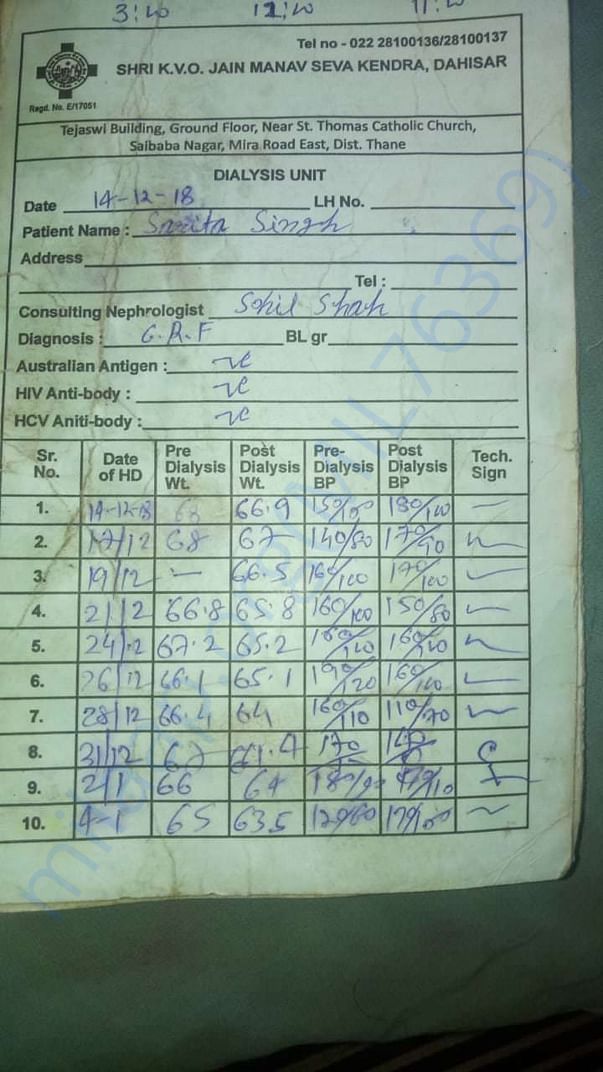 3:20 12:20 11:20
Tel no - 022 28100136/28100137
SHRI K.V.O. JAIN MANAV SEVA KENDRA, DAHISAR
Regd. No. E/17051
Tejaswi Building, Ground Floor, Near St. Thomas Catholic Church,
Saibaba Nagar, Mira Road East, Dist. Thane
DIALYSIS UNIT
Date 14-12-18 LH No.
Patient Name : Singh
Address
Tel :
Consulting Nephrologist Sohil Shah
Diagnosis : C.R.F BL gr
Australian Antigen : -ve
HIV Anti-body : -ve
HCV Aniti-body : -ve
Sr. No. Date of HD Pre Dialysis Wt. Post Dialysis Wt. Pre-Dialysis BP Post Dialysis BP Tech. Sign
1. 14-12-18 68 66.9 180/100
2. 17/12 68 67 140/80 170/90
3. 19/12 - 66.5 160/100 170/100
4. 21/12 66.8 65.8 160/100 150/80
5. 24/12 67.2 65.2
6. 26/12 66.1 65.1 190/120
7. 28/12 66.4 64 160/110 110/70
8. 31/12
9. 2/1 66 64 180/90
10. 4-1 65 63.5 120/60 170/100
milaap.org(MIL76369)